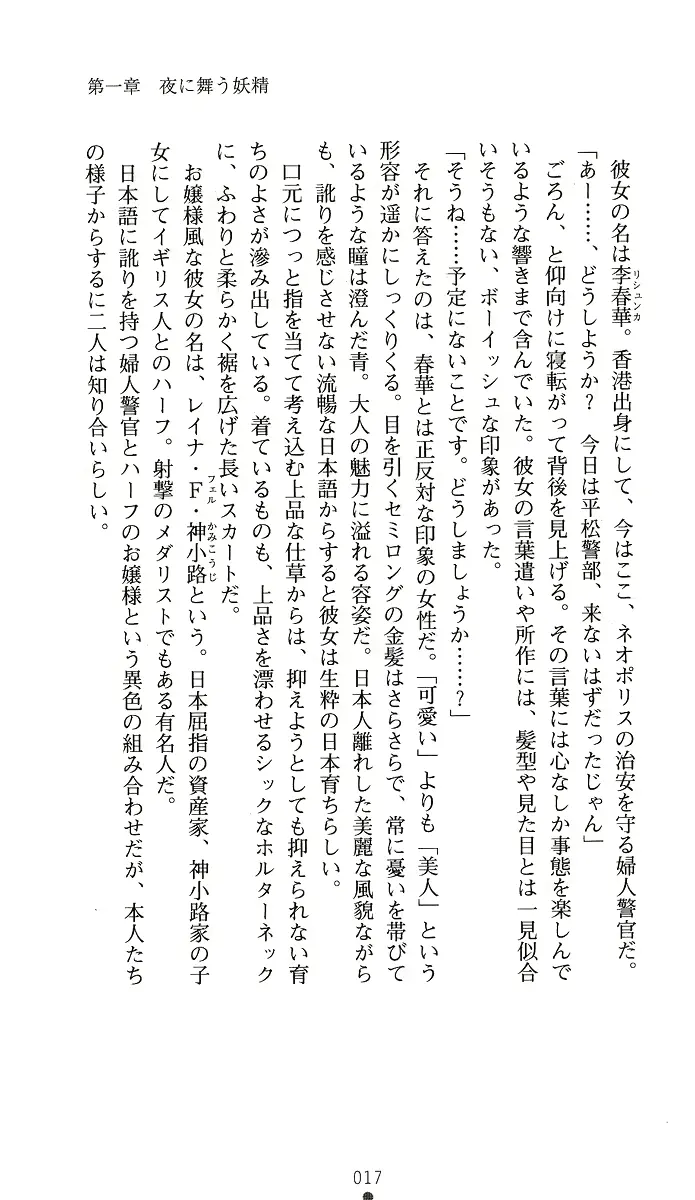 第一章　夜に舞う妖精
彼女の名は李春華。香港出身にして、今はここ、ネオポリスの治安を守る婦人警官だ。
リシュンカ
「あー……、どうしようか？　今日は平松警部、来ないはずだったじゃん」
ごろん、と仰向けに寝転がって背後を見上げる。その言葉には心なしか事態を楽しんで
いるような響きまで含んでいた。彼女の言葉遣いや所作には、髪型や見た目とは一見似合
いそうもない、ボーイッシュな印象があった。
「そうね……予定にないことです。どうしましょうか……？」
それに答えたのは、春華とは正反対な印象の女性だ。「可愛い」よりも「美人」という
形容が遥かにしっくりくる。目を引くセミロングの金髪はさらさらで、常に憂いを帯びて
いるような瞳は澄んだ青。大人の魅力に溢れる容姿だ。日本人離れした美麗な風貌ながら
も、訛りを感じさせない流暢な日本語からすると彼女は生粋の日本育ちらしい。
口元につっと指を当てて考え込む上品な仕草からは、抑えようとしても抑えられない育
ちのよさが滲み出している。着ているものも、上品さを漂わせるシックなホルターネック
に、ふわりと柔らかく裾を広げた長いスカートだ。
お嬢様風な彼女の名は、レイナ・Ｆ・神小路という。日本屈指の資産家、神小路家の子
フェル
かみこうじ
女にしてイギリス人とのハーフ。射撃のメダリストでもある有名人だ。
日本語に訛りを持つ婦人警官とハーフのお嬢様という異色の組み合わせだが、本人たち
の様子からするに二人は知り合いらしい。
017